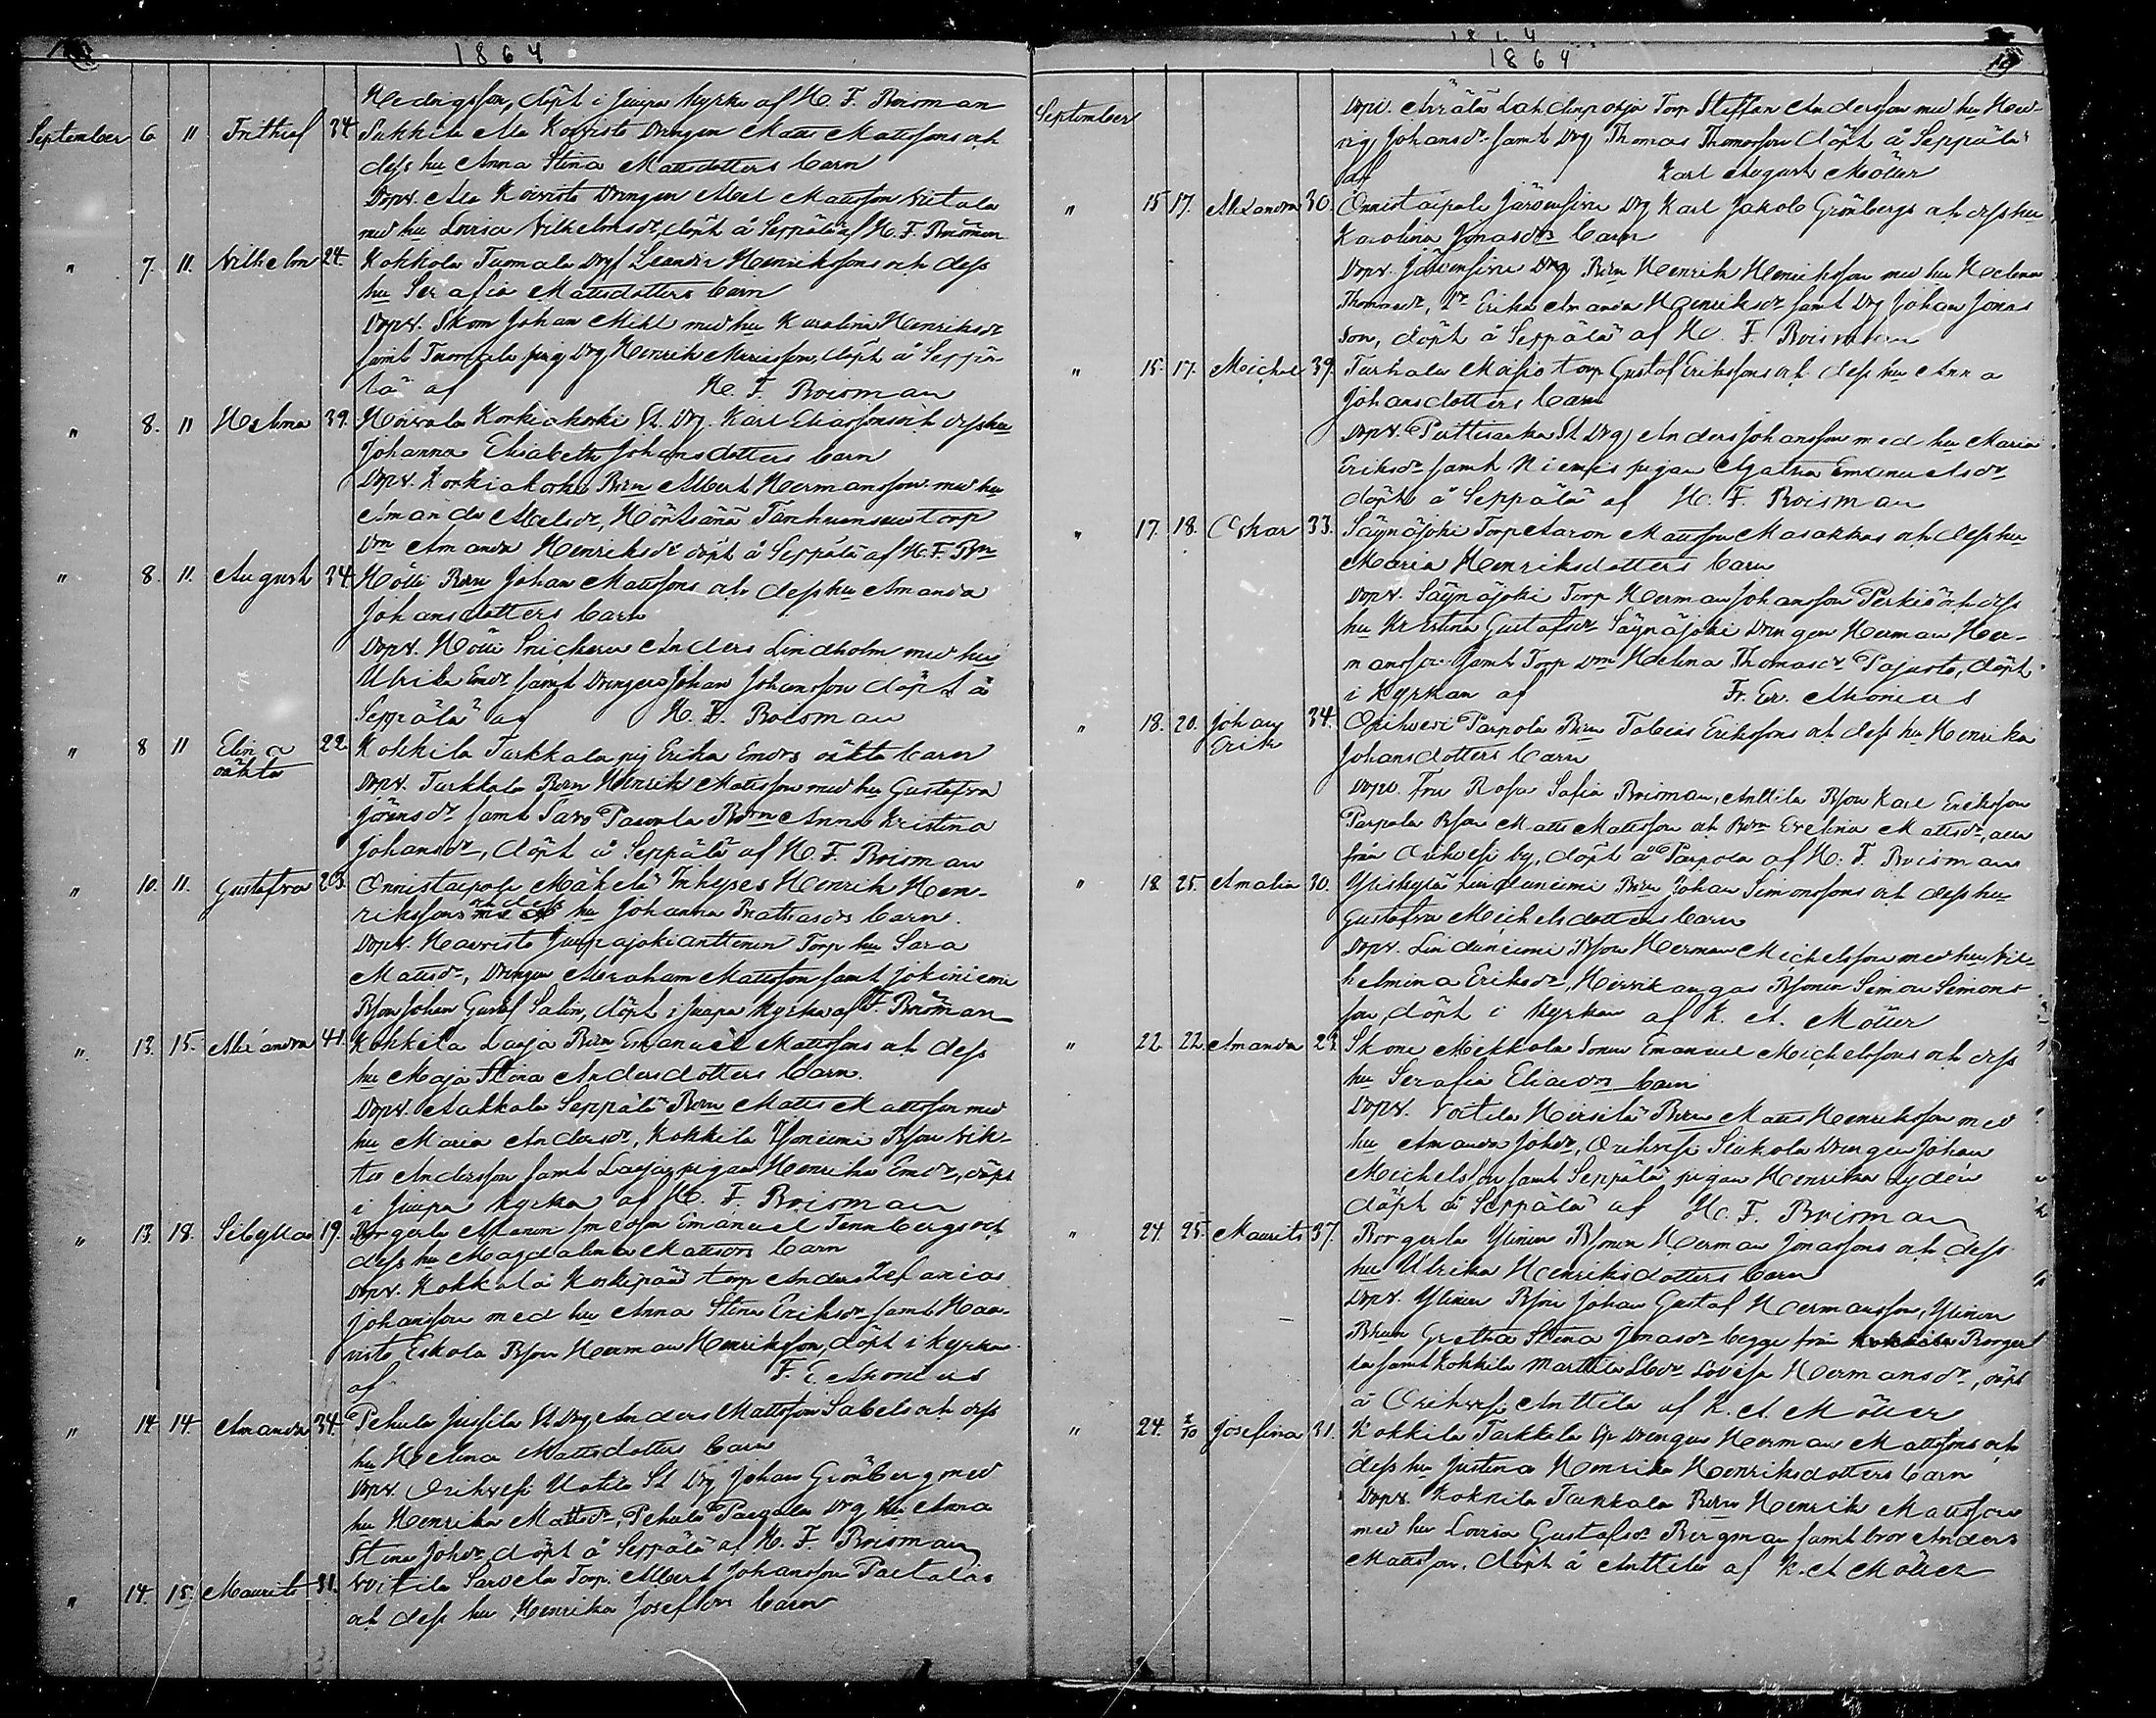 1864
Hedvigsson, döpt i Juupa Kyrka af H. F. Boisman
September 6 11 Frithiof 34 Sukkila Ala Koivisto Drengen Matts Mattssons och
dess hu Anna Stina Mattsdotters barn
Dopv. Ala Koivisto Drengen Abel Mattsson Vietala
med hu Lovisa Vilhelmsdr, döpt å Seppälä af H. F. Boisman
" 7. 11. Vilhelm 24. Kokkola Tuomala Drg Leander Henrikssons och dess
hu Serafia Mattsdotters barn
Dopv. Skom Johan Mikl med hu Karolina Henriksdr
samt Tuomala pig Drg Henrik Mariasson, döpt å Seppä-
lä af H. F. Boisman
" 8. 11 Helena 39. Hoivala Korkiakoski St. Drg. Karl Eliassons och dess hu
Johanna Elisabeth Johansdotters barn
Dopv. Korkiakoski Brn Albert Hermansson med hu
Amanda Abelsdr, Höntsänä Tanhuansuu torp
Drn Amanda Henriksdr döpt å Seppälä af H. F. Bn
" 8. 11. August 34. Hötti Brn Johan Mattssons och dess hu Amanda
Johansdotters barn
Dopv. Hötti Snickeren Anders Lindholm med hu
Ulrika Emdr samt Drengen Johan Johansson döpt å
Seppälä af H. F. Boisman
" 8 11 Elin a 22. Kokkila Turkkala pig Erika Emdrs oäkta barn
oäkta
Dopv. Turkkala Brn Henrik Mattsson med hu Gustafva
Jöransdr samt Savo Paavola Brn Anna Kristina
Johansdr, döpt å Seppälä af H. F. Boisman
" 10. 11. Gustafva 23. Onnistaipale Mäkelä Inhyses Henrik Hen-
rikssons och dess hu Johanna Mathiasdrs barn.
Dopv. Haavisto Juupajoki Anttonen Torp hu Sara
Mattsdr, Drengen Abraham Mattsson samt Jokiniemi
Bson Johan Gustaf Salin, döpt i Juupa Kyrka af F. Boisman
". 13. 15. Alexandra 41. Kokkila Laaja Brn Emanuel Mattssons och dess
hu Maja Stina Andersdotters barn.
Dopv. Aakkola Seppälä Brn Matts Mattsson med
hu Maria Andersdr, Kokkila Isoniemi Bson Vik-
tor Andersson samt Laaja pigan Henrika Emdr, döpt
i Juupa Kyrka af H. F. Boisman
" 13. 18. Sibylla 19. Borgerla Ahonen Emanuel Tennbergs och
dess hu Magdalena Mattsdrs barn
Dopv. Kokkola Koskipää torp Anders Zefanias
Johansson med hu Anna Stina Eriksdr samt Haa-
visto Eskola Bson Herman Henriksson, döpt i Kyrkan
af F. E. Aronius
" 14. 14. Amanda 34. Pehula Jussila St Drg Anders Mattsson Sabels och dess
hu Helena Mattsdotters barn
Dopv. Orihvesi Uotila St Drg Johan Grönberg med
hu Henrika Mattsdr, Pehula Drg hu Anna
Stina Johdr döpt å Seppälä af H. F. Boisman
" 14. 15. Maurits 31. Voitila Sarvela Torp. Albert Johansson
och dess hu Henrika Josefdrs barn
1864
1864
September Dopv. Lahdenpohja Torp Steffan Andersson med hu Hed-
vig Johansdr samt Drg Thomas Thomasson döpt å Seppälä
af Karl August Möller
" 15 17. Alexandra 30. Onnistaipale Järvensivu Drg Karl Jakob Grönbergs och dess hu
Karolina Jonasdrs barn
Dopv. Järvensivu Drg Brn Henrik Henriksson med hu Helena
Thomasdr, Dr Erika Amanda Henriksdr samt Drg Johan Jonas
son, döpt å Seppälä af H. F. Boisman
" 15. 17. Meichel 39. Turkala Torp Gustaf Erikssons och dess hu Anna
Johansdotters barn
Dopv. St Drg Anders Johansson med hu Maria
Eriksdr samt Niemis pigan Agatha Emanuelsdr
döpt å Seppälä af H. F. Boisman
" 17. 18. Oskar 33. Säynäjoki Torp Aaron Mattsson Masakkas och dess hu
Maria Henriksdotters barn
Dopv. Säynäjoki Torp Herman Johansson Perkiö och dess
hu Kristina Gustafsdr Säynäjoki Drengen Herman Her-
mansson samt Torp Drn Helena Thomasdr Pajusto, döpt
i Kyrkan af Fr. Em. Aronius
" 18. 20. Johan 34. Orihvesi Parpola Brn Tobias Erikssons och dess hu Henrika
Erik
Johansdotters barn
Dopv. Fru Rosa Sofia Boisman, Anttila Bson Karl Eriksson
Parpola Bson Matts Mattsson och Brn Evelina Mattsdr, alla
från Orihvesi by, döpt å Parpola af H. F. Boisman
" 18 25. Amalia 30. Yliskylä Linduniemi Brn Johan Simonssons och dess hu
Gustafva Michelsdotters barn
Dopv. Linduniemi Bson Herman Michelsson med hu Vil-
helmina Eriksdr, Hirvikangas Bsonen Simon Simons-
son, döpt i Kyrkan af K. A. Möller
" 22 22. Amanda 23. Skom Mikkola Sonen Emanuel Michelssons och dess
hu Serafia Eliaedrs barn
Dopv. Voitila Heikkilä Brn Matts Henriksson med
hu Amanda Johdr, Orihvesi Siukola Drengen Johan
Michelsson samt Seppälä pigan Henrika Lydén
döpt å Seppälä af H. F. Boisman
" 24. 25. Maurits 37. Borgerla Ylinen Bsonen Herman Jonassons och dess
hu Ulrika Henriksdotters barn
Dopv. Ylinen Bson Johan Gustaf Hermansson, Ylinen
Bhun Gretha Stina Jonasdr begge från Borger
la samt Kokkila Marttila Lovisa Hermansdr, döpt
å Orihvesi Anttila af K. A. Möller
" 24. 2/10 Josefina 31. Kokkila Turkkala Drengen Herman Mattssons och
dess hu Justina Henrika Henriksdotters barn
Dopv. Kokkila Turkkala Brn Henrik Mattsson
med hu Lovisa Gustafsdr Bergman samt bror Anders
Mattsson, döpt å Anttila af K. A Möller